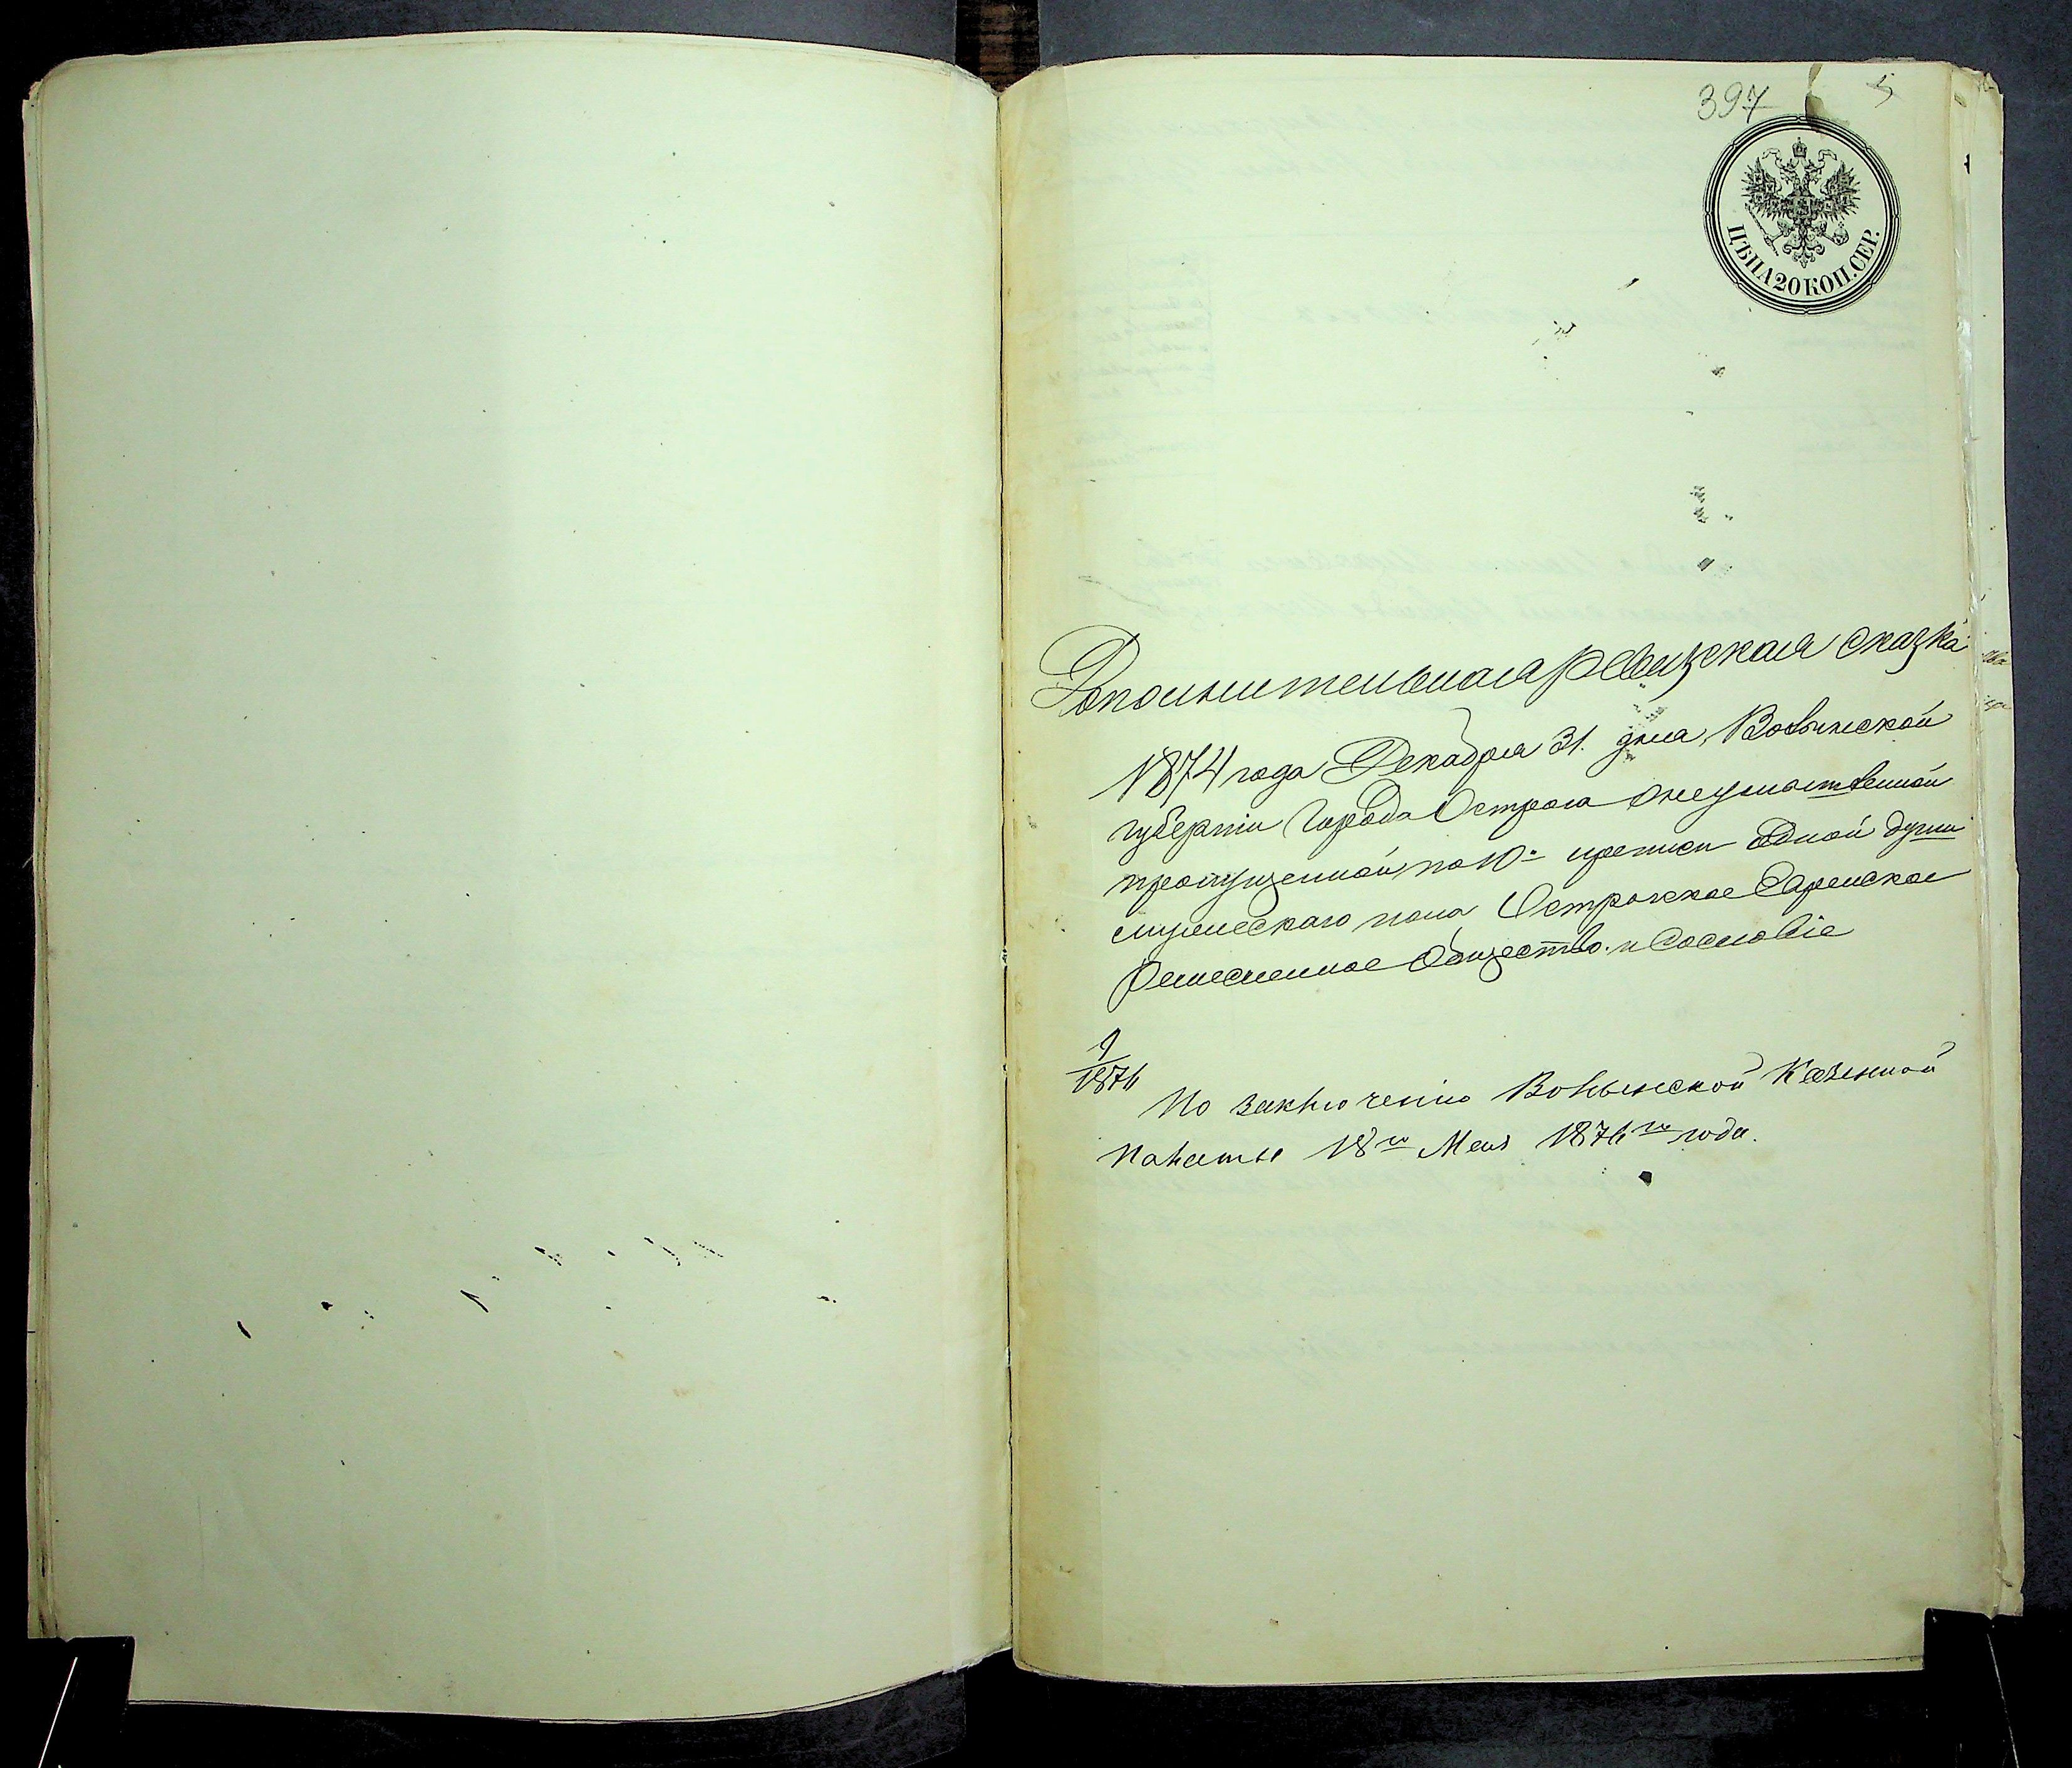 397
5
ЦѢНА 20 КОП. СЕР.
Дополнительная ревизская сказка
1874 года Декабря 31. дня, Волынской
губерніи Города Острога о неумышленной
пропущенной по 10й переписи одной души
мужескаго пола Острожское Еврейское
Ремесленное Общество и Сословіе
9
1876
По заключенію Волынской Казенной
Палаты 18го Мая 1876го года.